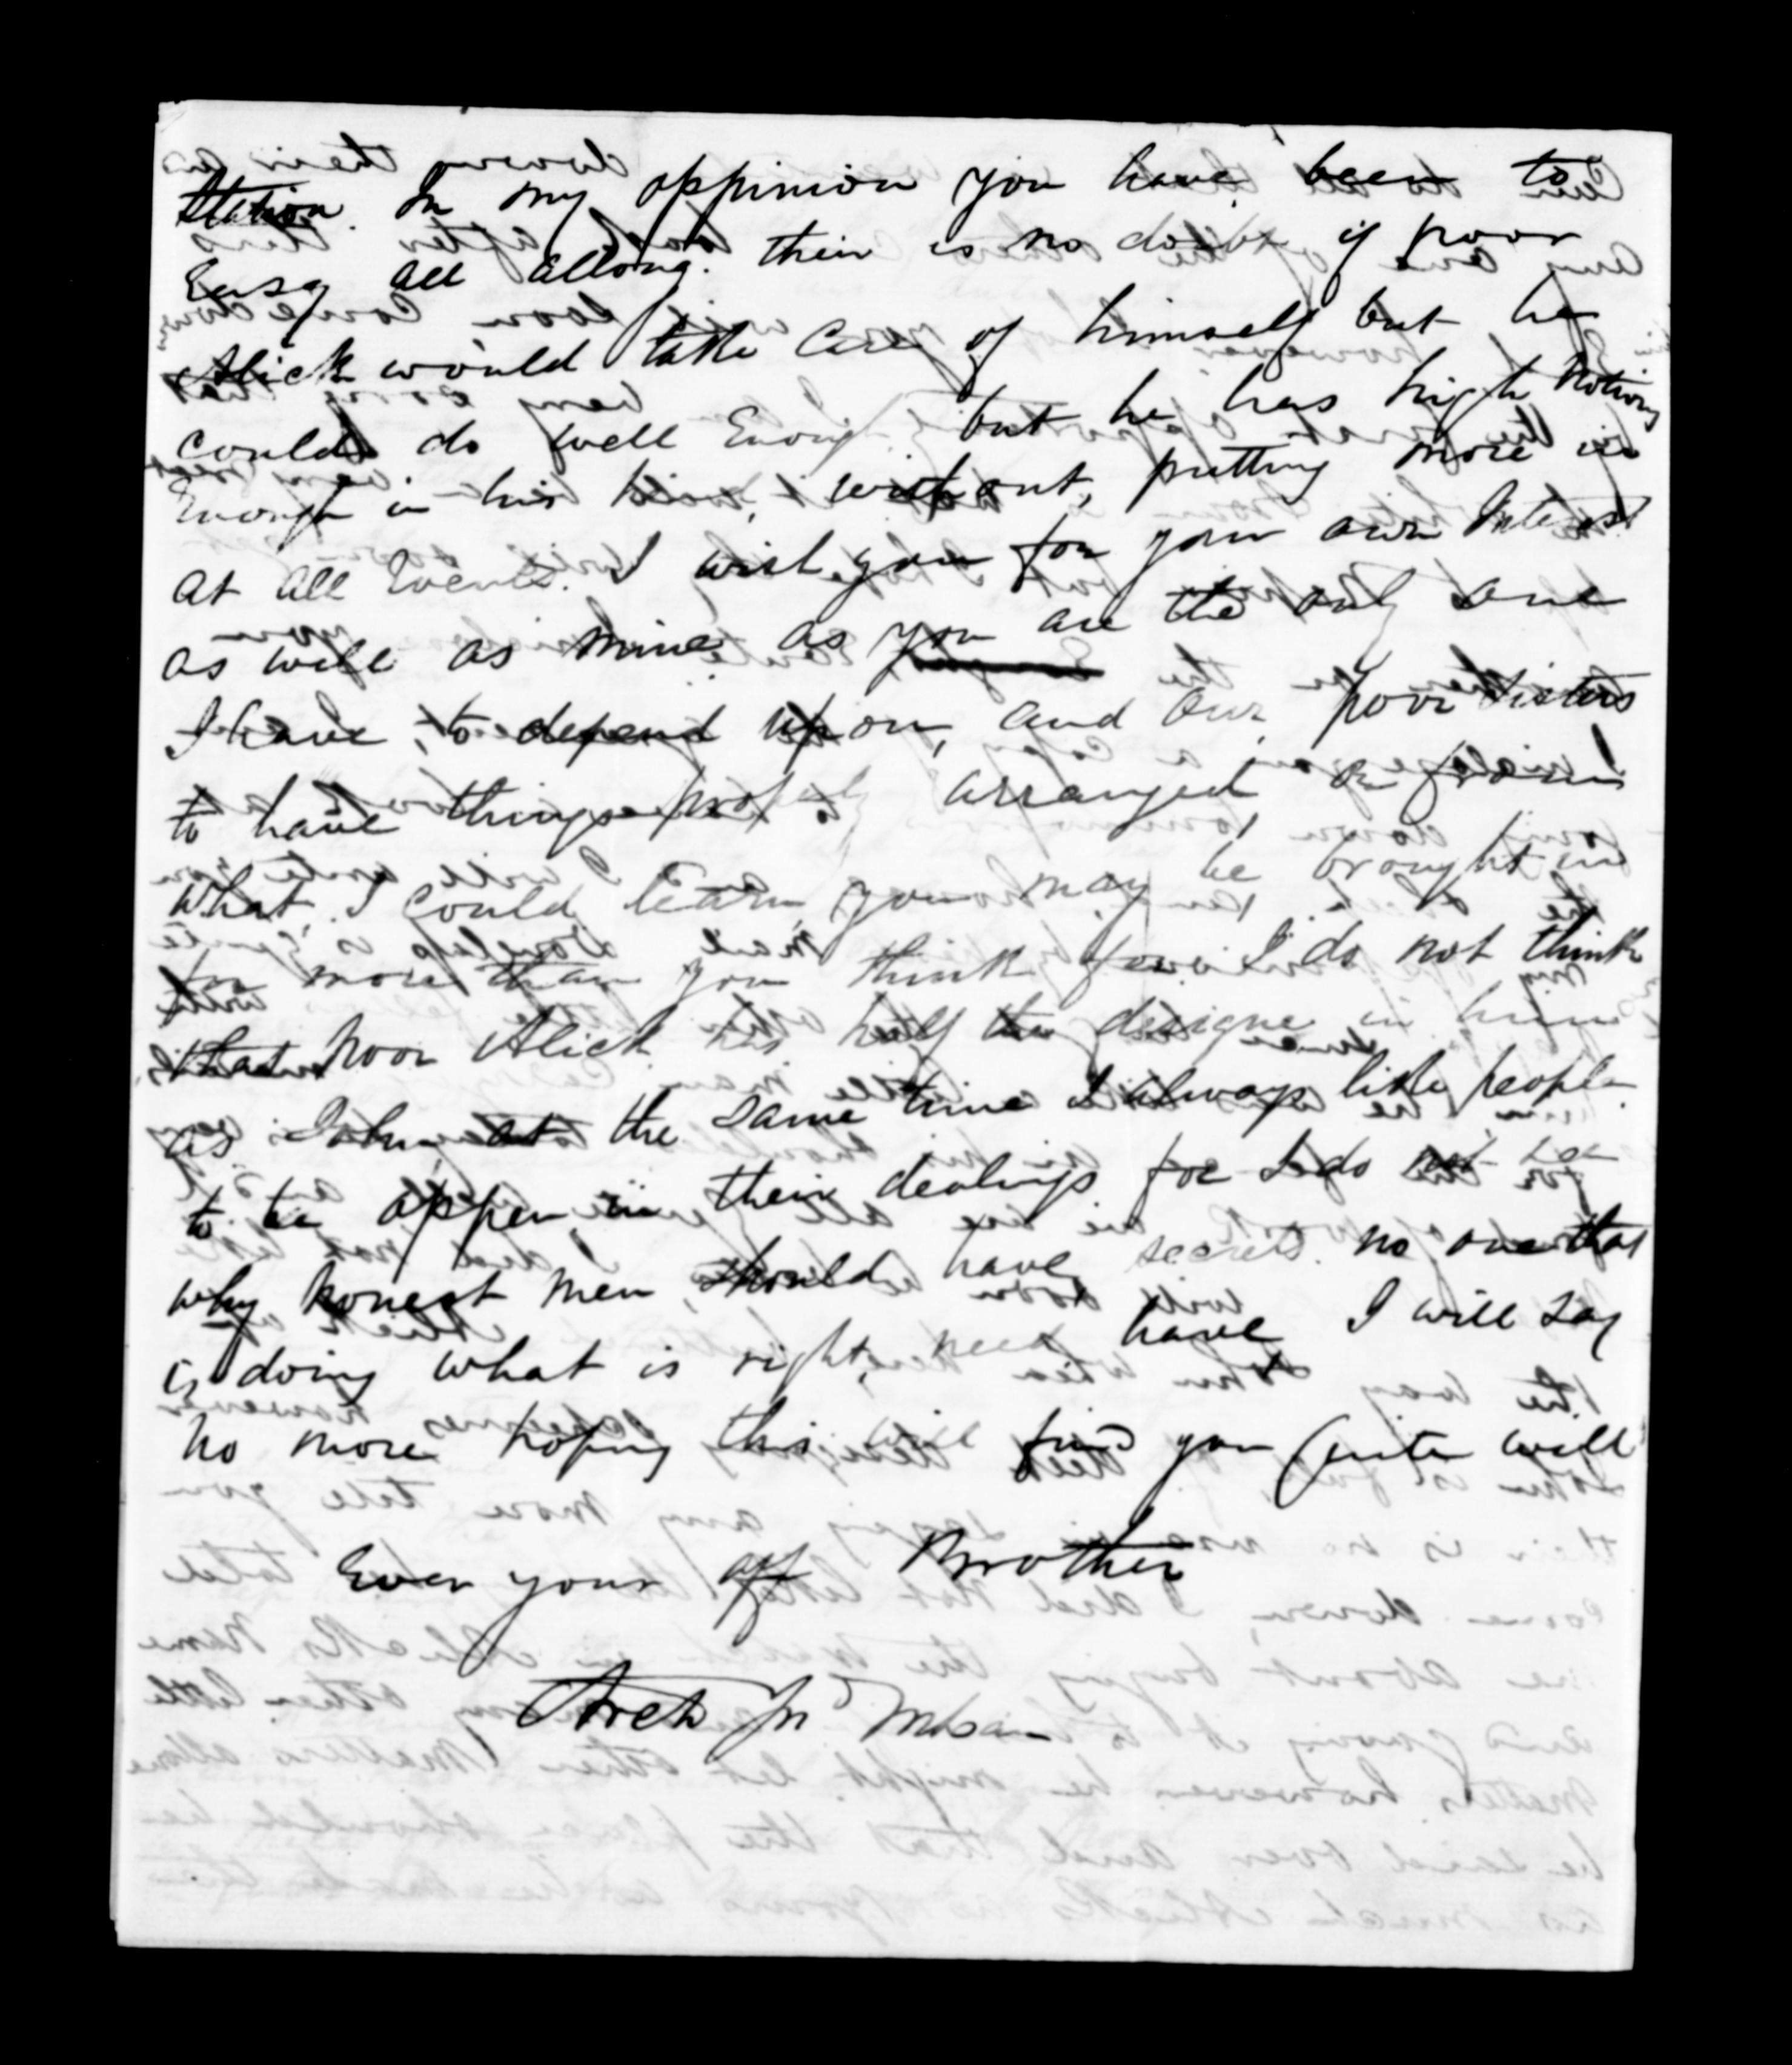 Station. In my oppinion you have been to
Easy all allong. their is no doubt if poor
Alick would take care of himself but he
could do well Enough but he has high Notions
Enough in his him, without, putting more in
at all Events. I wish you for your own Interest
as well as mine as you are the only one
I have, to depend upon, and our poor sisters
to have things properly arranged as from
what I could learn you may be brought in
for more than you think for. I do not think
that Poor Alick has half the designe in him
as John at the same time I always like people
to be oppen in their dealings for I do not see
why honest men, should have secrets no one that
is doing what is right, need have I will say
no more hoping this will find you quite well
Ever your aff Brother
Arch Jn McLean